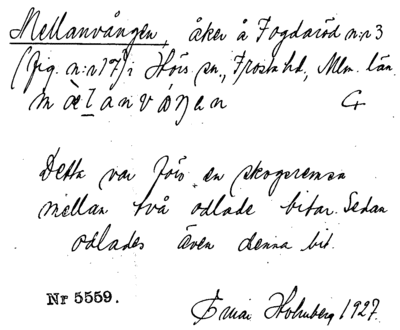 Mellanvången, åker å Fogdaröd n:r 3
(fig. n:r 17) i Hörs sn., Frosta hd, Mlm. län.
mæl̲anvåŋen
Detta var förr en skogsremsa
mellan två odlade bitar. Sedan
odlades även denna bit.
Nr 5559.
Holmberg 1927.